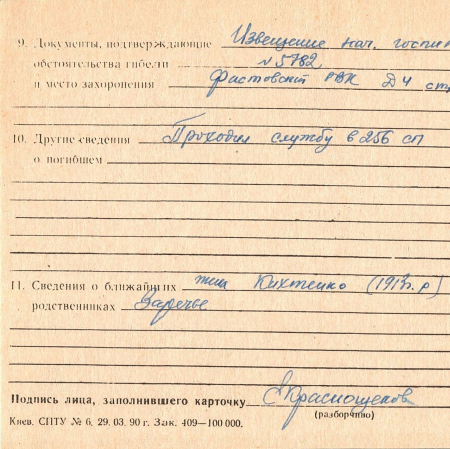 9. Документы, подтверждающие Извещение нач. госпит
обстоятельства гибели №5782
и место захоронения Фастовский РВК Д 4 стр
10. Другие сведения Проходил службу в 256 сп
о погибшем
11. Сведения о ближайших жена Кихтенко (1913г.р)
родственниках Заречье
Подпись лица, заполнившего карточку Краснощеков
(разборчиво)
Киев. СПТУ № 6. 29. 03. 90 г. Зак. 409—100 000.